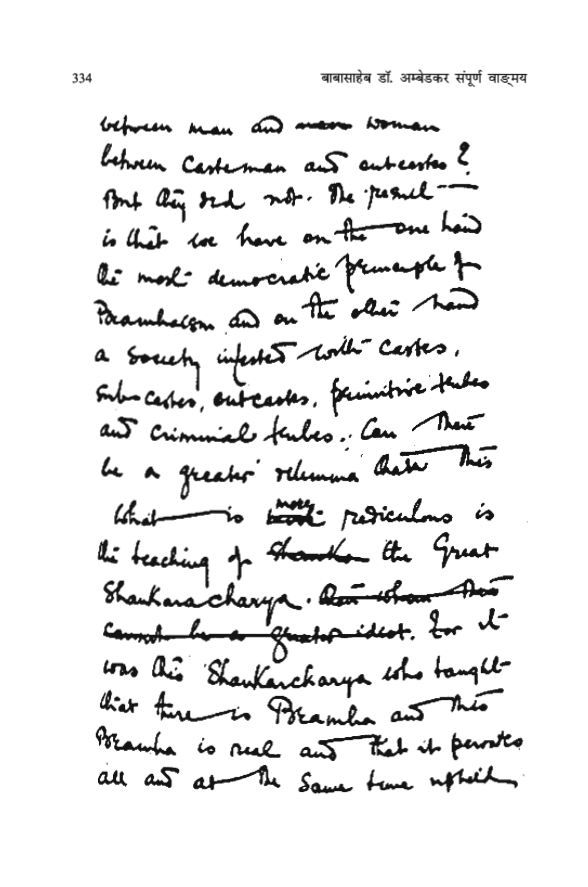 334
बाबासाहेब डॉ. अम्बेडकर संपूर्ण वाङ्मय
between man and woman
between Casteman and outcastes ?
But they did not. The result
is that we have on the one hand
the most democratic principle of
Bramhaism and on the other hand
a Society infested with Castes,
Subcastes, outcastes, primitive tribes
and criminal tribes. Can there
be a greater dilemma than this
What is more rediculous is
the teaching of the Great
Shankaracharya. For it
was this Shankarcharya who taught
that there is Bramha and this
Bramha is real and that it pervades
all and at the same time upheld